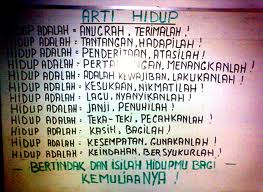 ARTI HIDUP
HIDUP ADALAH = ANUGRAH, TERIMALAH !
HIDUP ADALAH = TANTANGAN, HADAPILAH !
HIDUP ADALAH = PENDERITAAN, ATASILAH !
HIDUP ADALAH = MENANGKANLAH !
HIDUP ADALAH = ADALAH KEWAJIBAN, LAKUKANLAH !
HIDUP ADALAH = KESUKAAN, NIKMATILAH !
HIDUP ADALAH = LAGU, NYANYIKANLAH !
HIDUP ADALAH = JANJI, PENUHILAH !
HIDUP ADALAH = TEKA-TEKI, PECAHKANLAH !
HIDUP ADALAH = KASIH, BAGILAH !
HIDUP ADALAH = KESEMPATAN, GUNAKANLAH !
HIDUP ADALAH = KEINDAHAN, BERSYUKURLAH !
BERTINDAK DAN ISILAH HIDUPMU BAGI
KEMULIAANNYA !